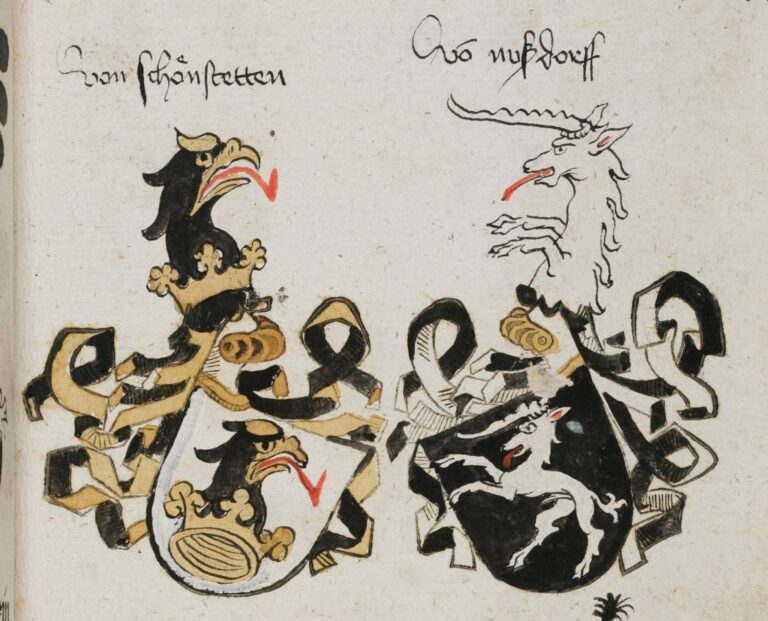 von schönstetten
Vō nuſzdorff